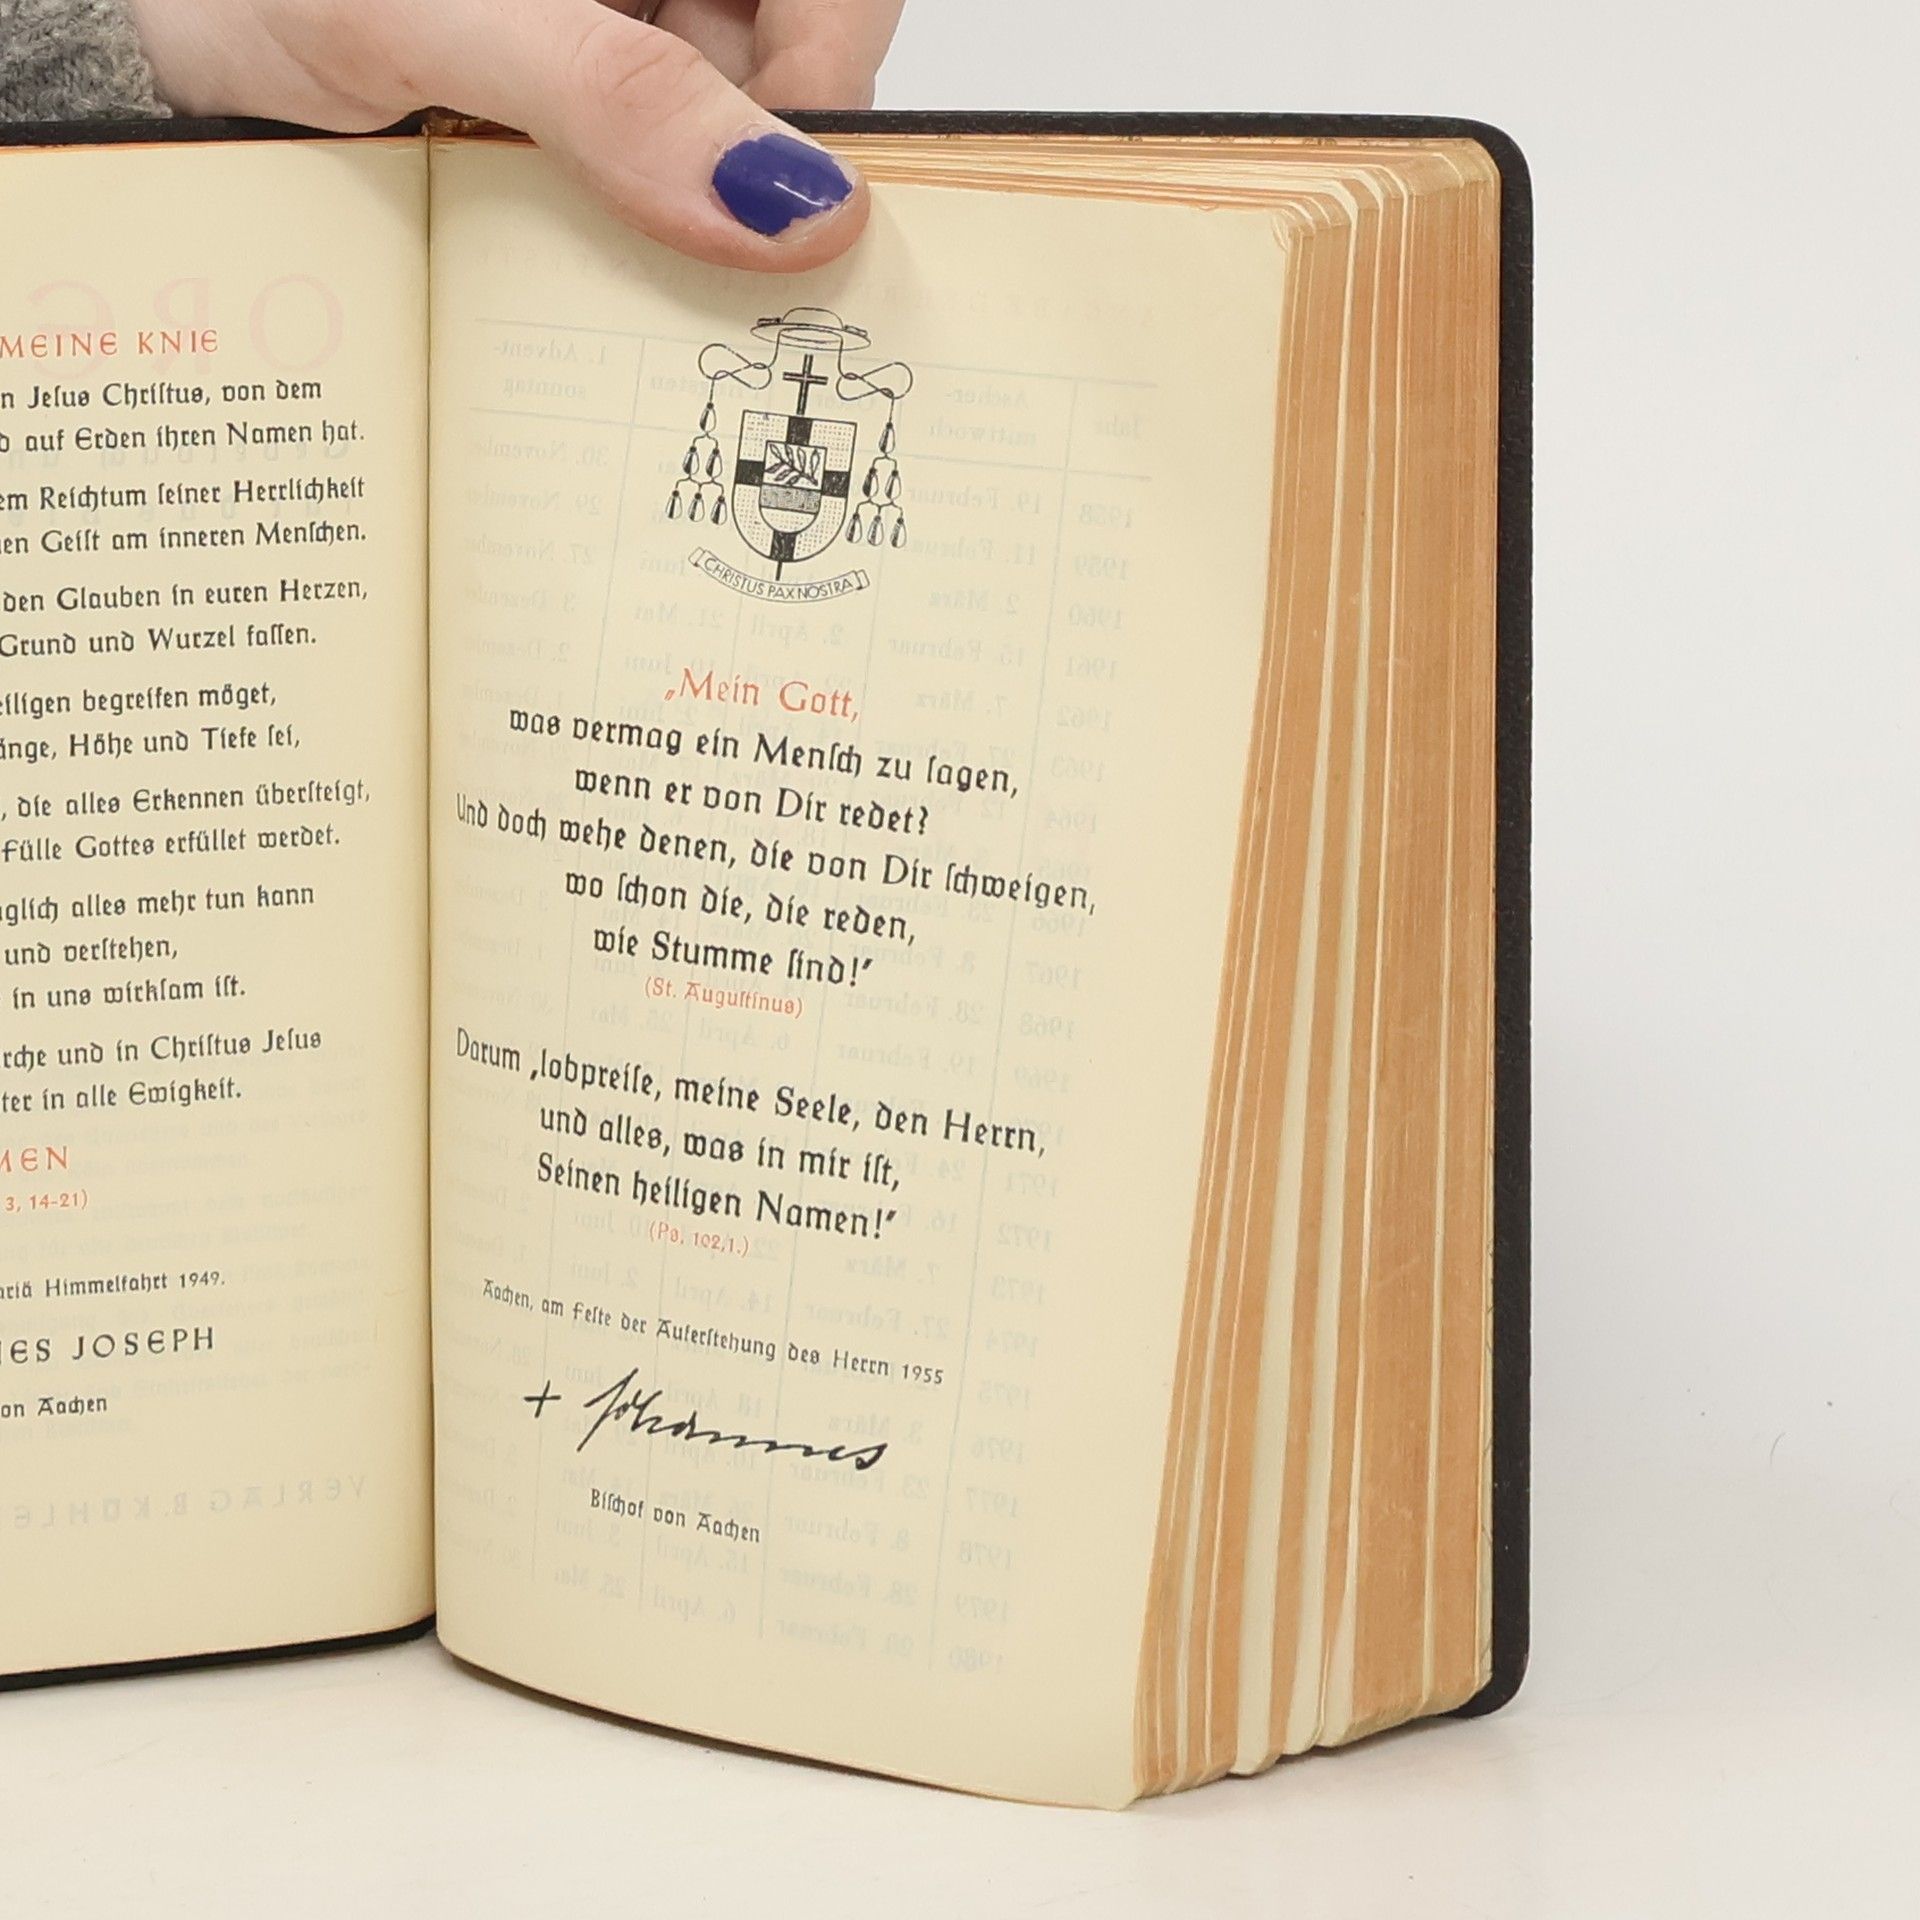 MEINE KNIE
n Jeſus Chriſtus, von dem
auf Erden ihren Namen hat.
em Reichtum ſeiner Herrlichkeit
en Geiſt am inneren Menſchen.
den Glauben in euren Herzen,
Grund und Wurzel faſſen.
eiligen begreifen möget,
änge, Höhe und Tiefe ſei,
, die alles Erkennen überſteigt,
Fülle Gottes erfüllet werdet.
glich alles mehr tun kann
und verſtehen,
in uns wirkſam iſt.
rche und in Chriſtus Jeſus
ter in alle Ewigkeit.
MEN
3, 14-21)
ariä Himmelfahrt 1949.
NES JOSEPH
on Aachen
CHRISTUS PAX NOSTRA
„Mein Gott,
was vermag ein Menſch zu ſagen,
wenn er von Dir redet?
Und doch wehe denen, die von Dir ſchweigen,
wo ſchon die, die reden,
wie Stumme ſind!“
(St. Auguſtinus)
Darum ‚lobpreiſe, meine Seele, den Herrn,
und alles, was in mir iſt,
Seinen heiligen Namen!“
(Ps. 102,1.)
Aachen, am Feſte der Auferſtehung des Herrn 1955
+ Johannes
Biſchof von Aachen